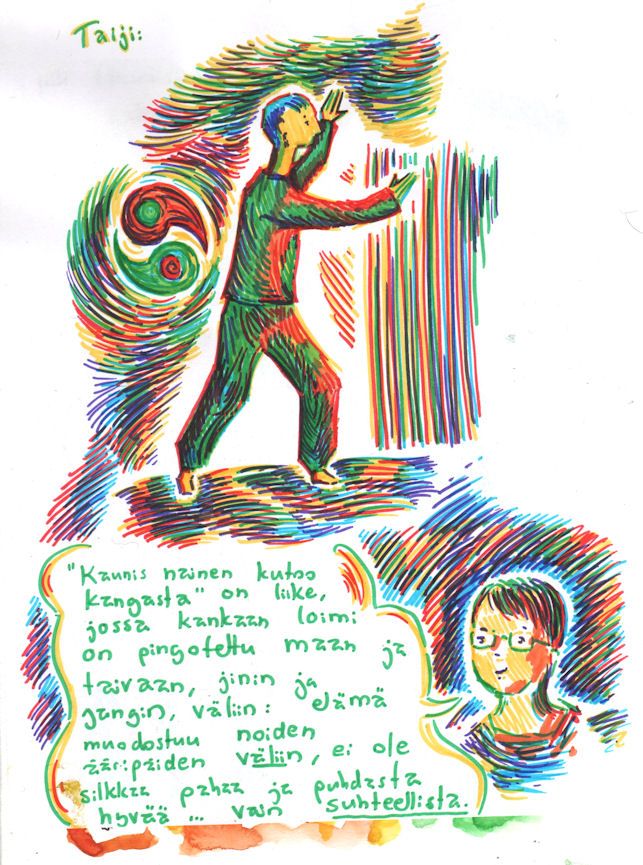 Taiji:
"Kaunis nainen kutoo
kangasta" on liike,
jossa kankaan loimi
on pingotettu maan ja
taivaan, jinin ja
jangin, väliin: elämä
muodostuu noiden
ääripäiden väliin, ei ole
silkkaa pahaa ja puhdasta
hyvää ... vain suhteellista.